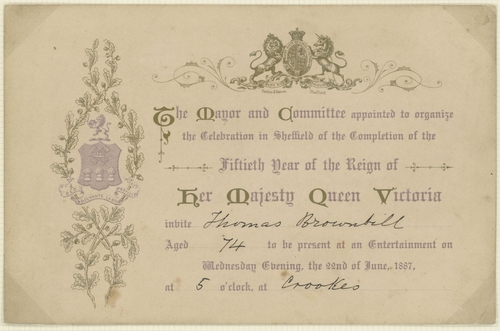 The Mayor and Committee appointed to organize
the Celebration in Sheffield of the Completion of the
Fiftieth Year of the Reign of
Her Majesty Queen Victoria
invite Thomas Brownbill
Aged 74 to be present at an Entertainment on
Wednesday Evening, the 22nd of June, 1887,
at 5 o'clock, at Crookes